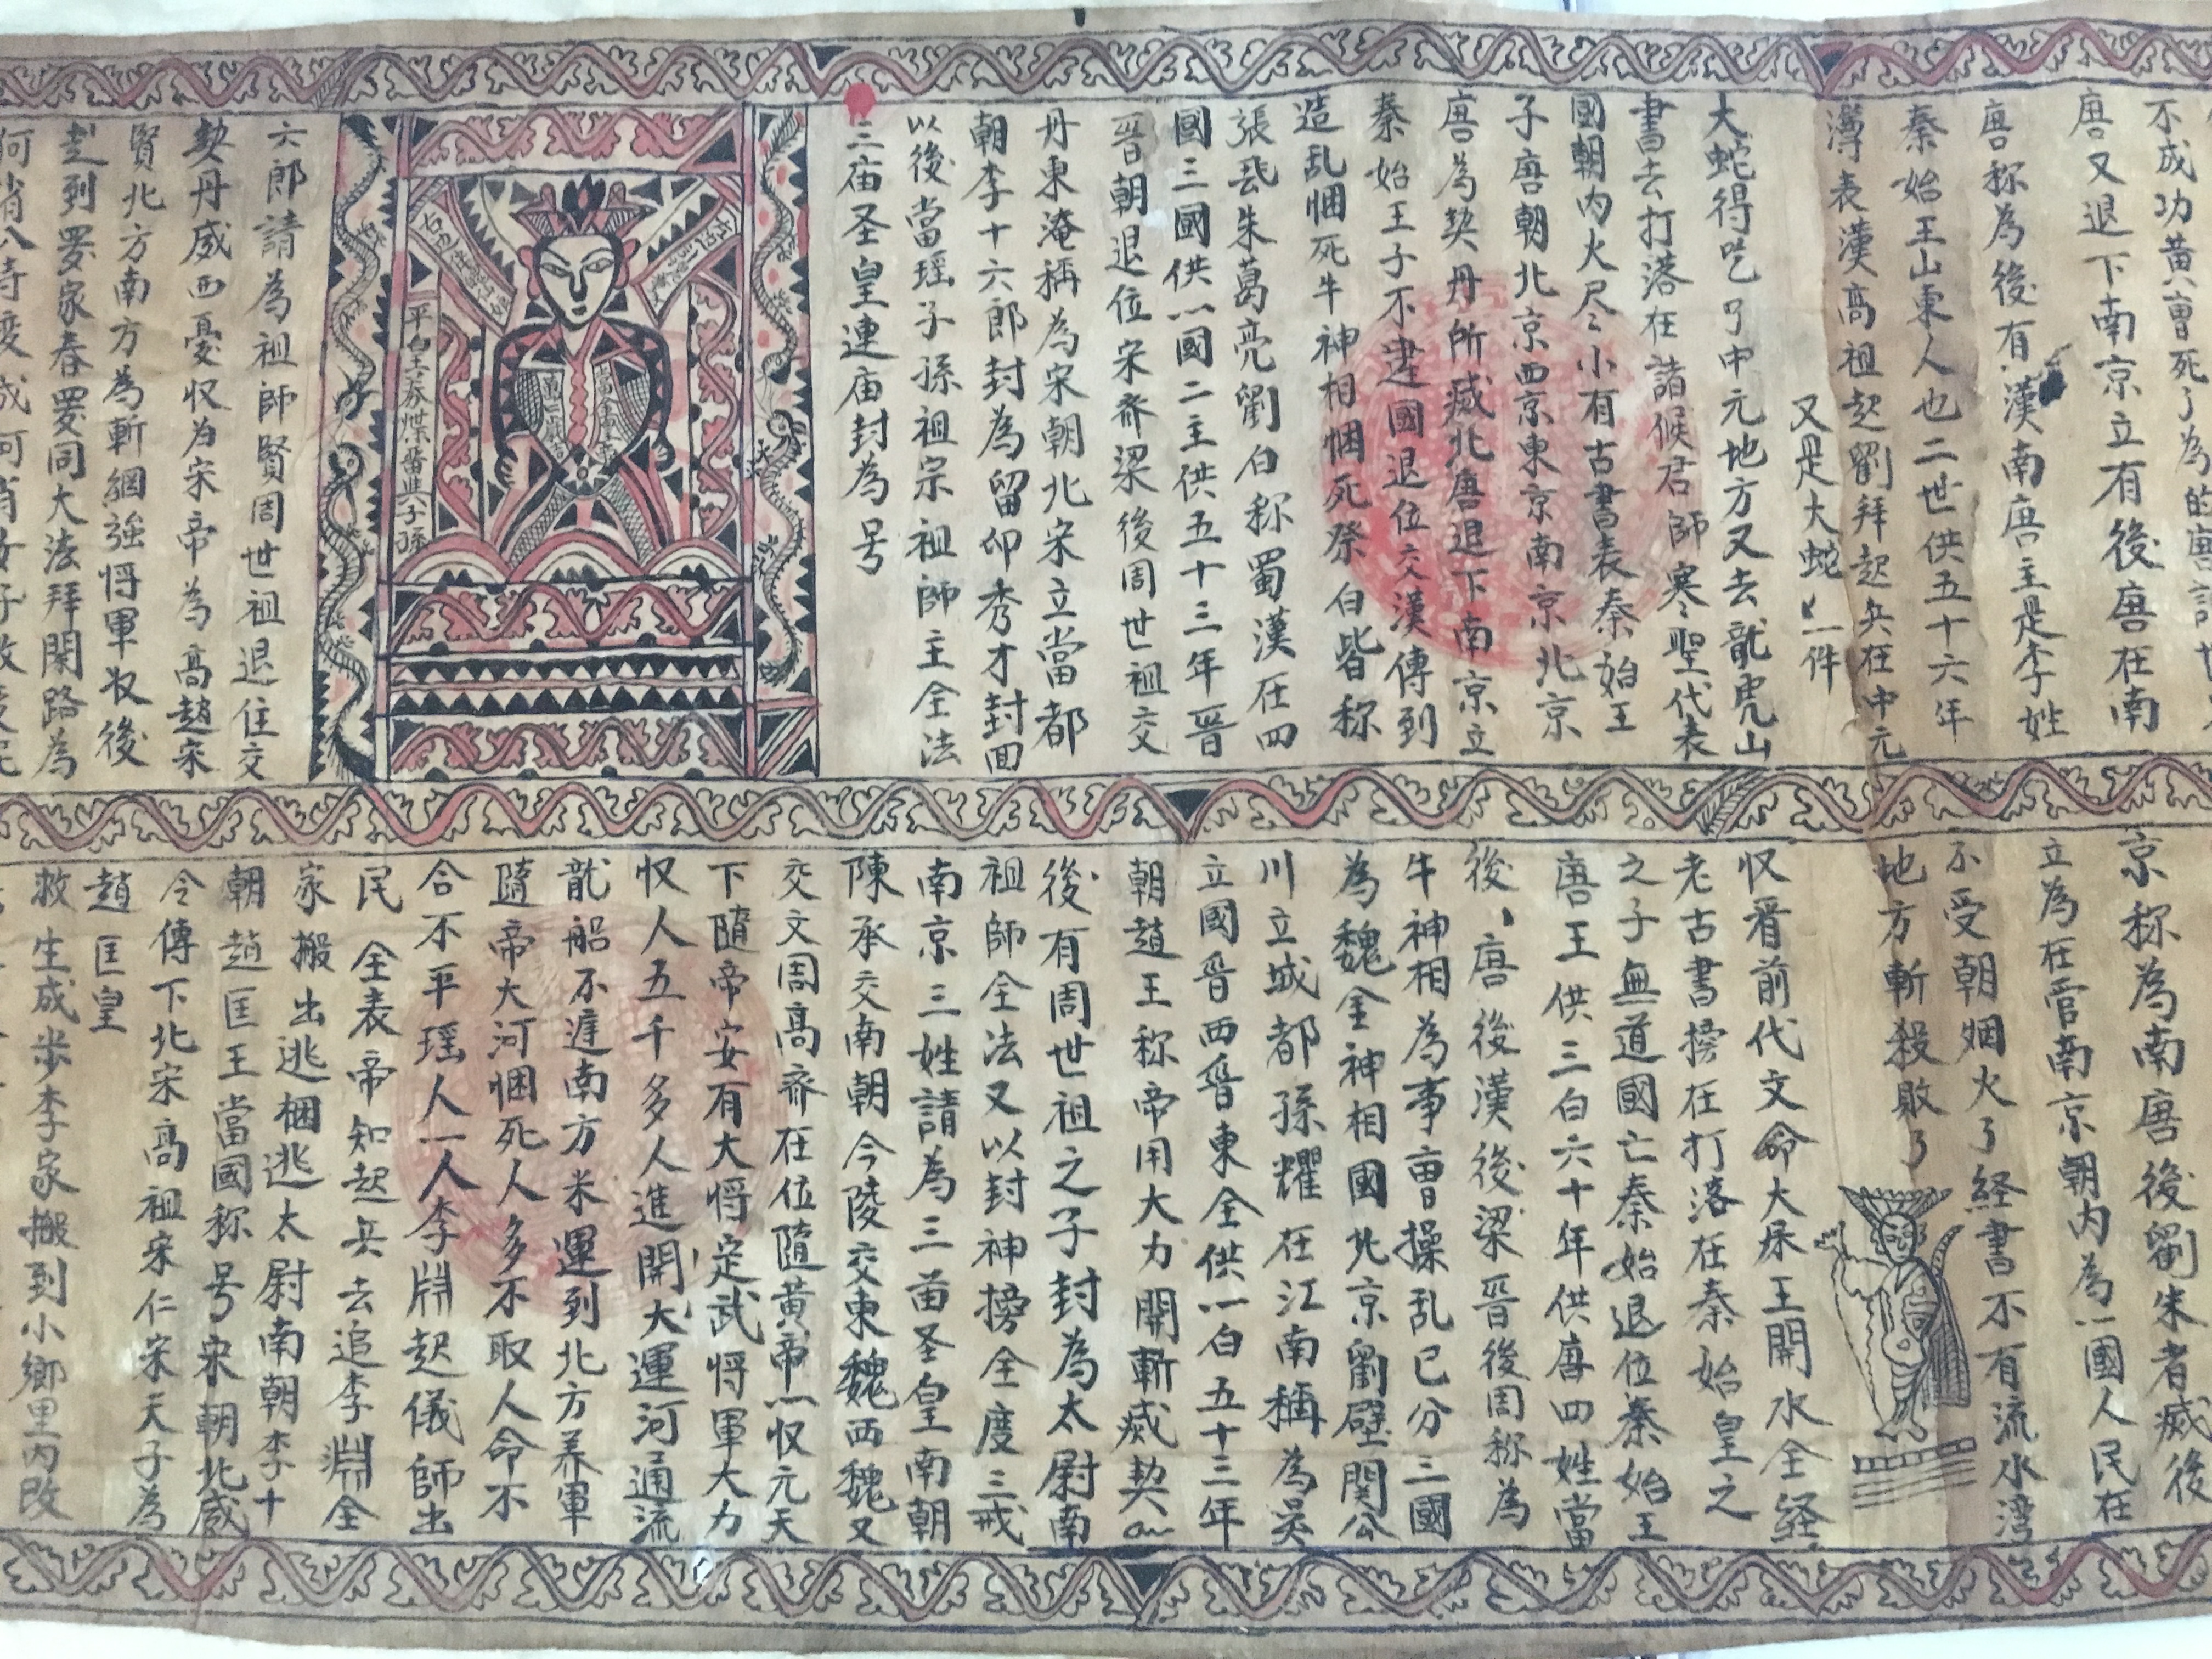 不成功黃曹死了為的
唐又退下南京立有後唐在南
唐称為後有漢南唐主是李姓
秦始王山東人也二世供五十六年
薄表漢高祖起劉拜起兵在中元
又是大蛇一件
大蛇得吃了中元地方又去龍虎山
書去打落在諸候君師寒聖代表
國朝內火尽々小有古書表秦始王
子唐朝北京西京東京南京北京
唐為契丹所威北唐退下南京立
秦始王子不建國退位交漢傳到
造乱悃死牛神相悃死祭白皆称
張飛朱葛亮劉白称蜀漢在四
國三國供一國二主供五十三年晉
晋朝退位宋齐梁後周世祖交
丹東淹稱為宋朝北宋立當都
朝李十六郎封為留印秀才封回
以後當瑶子孫祖宗祖師主全法
三庙圣皇連庙封為号
平白王券牒番典子孫
六郎請為祖師賢周世祖退住交
契丹威西憂収为宋帝為高趙宋
賢北方南方為斬綱強將軍収後
赴到罗家春罗同大法拜開路為
京称為南唐後劉朱者滅後
立為在官南京朝内為一國人民在
不受朝烟火了経書不有流水湾
地方斬殺敗了
収晋前代文命大尿王開水全経
老古書榜在打落在秦始皇之
之子無道國亡秦始退位秦始王
唐王供三白六十年供唐四姓當
後唐後漢後梁晉後周称為
牛神相為事曹操乱已分三國
為魏金神相國北京劉壁関公
川立城都孫耀在江南稱為吳
立國晉西晉東全供一白五十三年
朝趙王称帝用大力開斬威契
後有周世祖之子封為太尉南
祖師全法又以封神榜全度三戒
南京三姓請為三苗圣皇南朝
陳承交南朝今陵交東魏西魏又
交文周高齐在位隨黃帝一収元天
下隨帝安有大將定武將軍大力
収人五千多人進開大運河通流
龍船不進南方米運到北方养軍
隨帝大河悃死人多不取人命不
合不平瑶人一人李淵起儀師出
民全表帝知起兵去追李淵全
家搬出逃梱逃太尉南朝李十
朝趙匡王當國称号宋朝北威
今傳下北宋高祖宋仁宋天子為
趙匡皇
救生成步李家搬到小鄉里内改